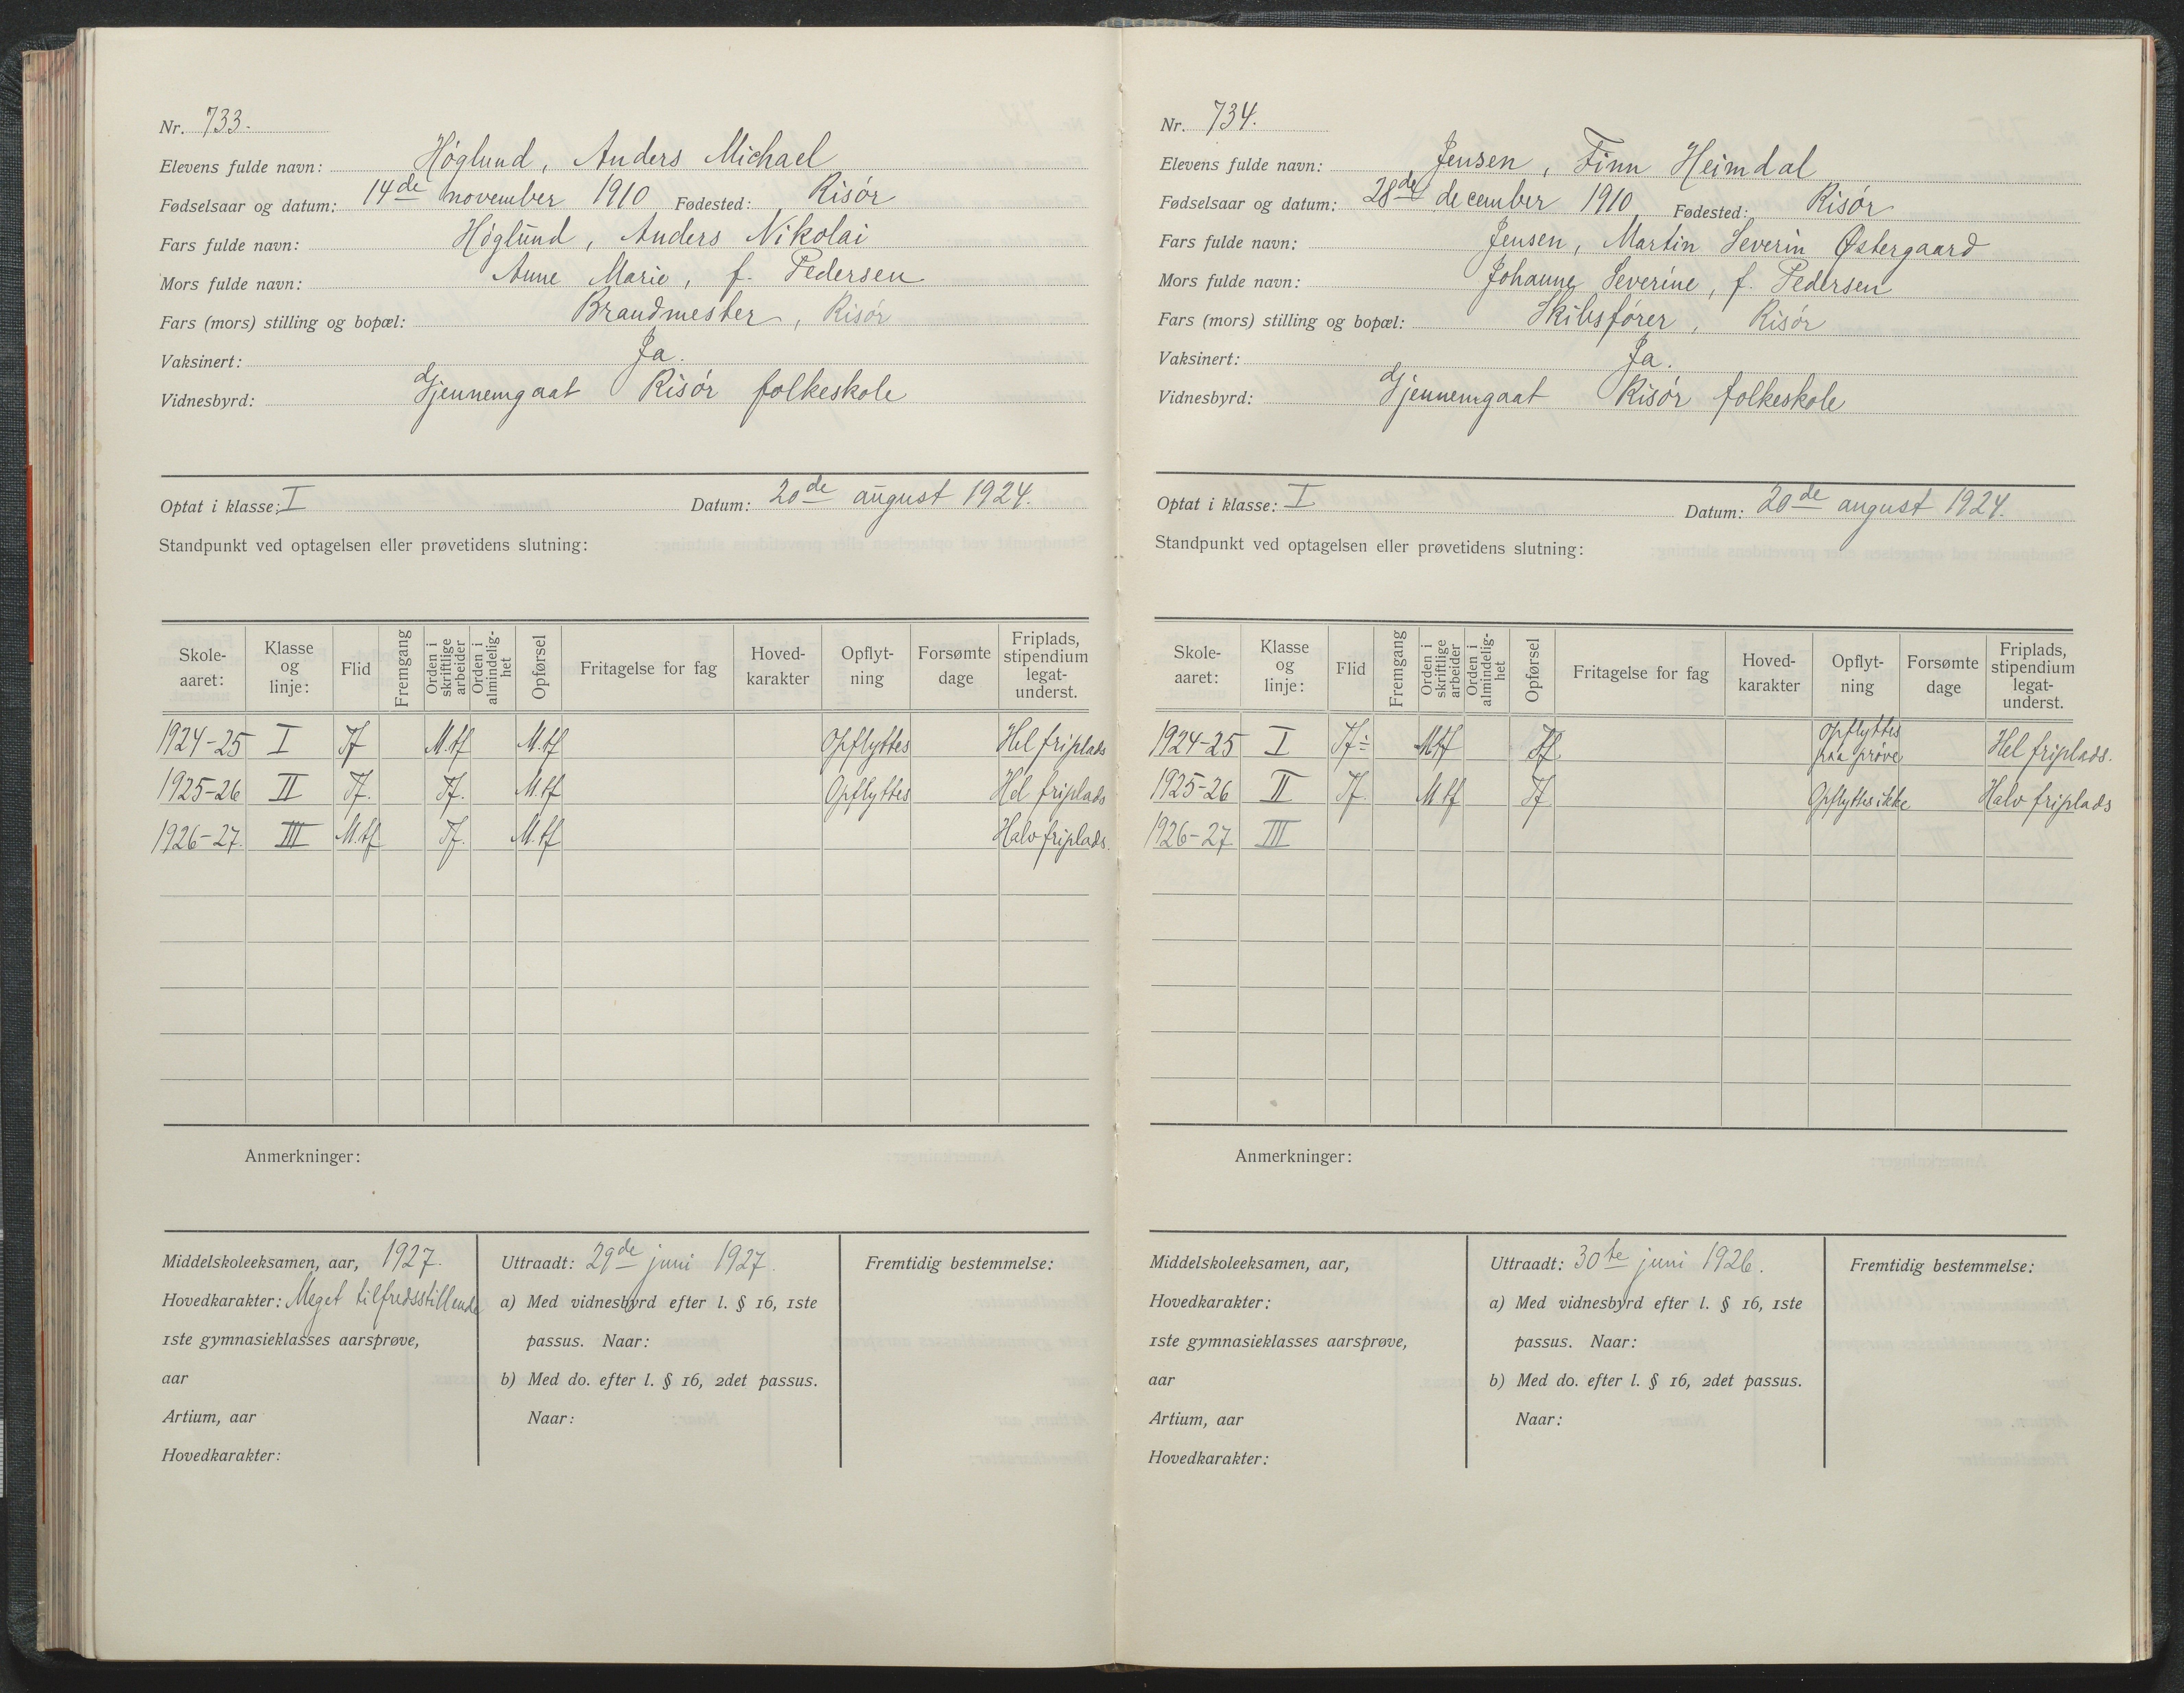 Nr. 733.
Elevens fulde navn: Höglund, Anders Michael
Fødselsaar og datum: 14de november 1910 Fødested: Risör
Fars fulde navn: Höglund, Anders Nikolai
Mors fulde navn: Anne Marie, f. Pedersen
Fars (mors) stilling og bopæl: Brandmester, Risör
Vaksinert: Ja.
Vidnesbyrd: Gjennemgaat Risör folkeskole
Optat i klasse: I Datum: 20de august 1924.
Standpunkt ved optagelsen eller prøvetidens slutning:
Skole-aaret: Klasse og linje: Flid Fremgang Orden i skriftlige arbeider Orden i almindelig-het Opførsel Fritagelse for fag Hoved-karakter Opflyt-ning Forsømte dage Friplads, stipendium legat-underst.
1924-25 I Tf M.tf M.tf Opflyttes Hel friplads
1925-26 II Tf. Tf. M.tf Opflyttes Hel friplads
1926-27. III M.tf Tf. M.tf Halv friplads.
Anmerkninger:
Middelskoleeksamen, aar, 1927.
Hovedkarakter: Meget tilfredsstillende
1ste gymnasieklasses aarsprøve,
aar
Artium, aar
Hovedkarakter:
Uttraadt: 29de juni 1927.
a) Med vidnesbyrd efter l. § 16, 1ste
passus. Naar:
b) Med do. efter l. § 16, 2det passus.
Naar:
Fremtidig bestemmelse:
Nr. 734.
Elevens fulde navn: Jensen, Finn Heimdal
Fødselsaar og datum: 28de december 1910 Fødested: Risör
Fars fulde navn: Jensen, Martin Severin Østergaard
Mors fulde navn: Johanne Severine, f. Pedersen
Fars (mors) stilling og bopæl: Skibsfører, Risör
Vaksinert: Ja.
Vidnesbyrd: Gjennemgaat Risör folkeskole
Optat i klasse: I Datum: 20de august 1924.
Standpunkt ved optagelsen eller prøvetidens slutning:
Skole-aaret: Klasse og linje: Flid Fremgang Orden i skriftlige arbeider Orden i almindelig-het Opførsel Fritagelse for fag Hoved-karakter Opflyt-ning Forsømte dage Friplads, stipendium legat-underst.
1924-25 I Tf÷ Mtf Tf Opflyttes paa prøve Hel friplads.
1925-26 II Tf. Mtf Tf Opflyttes ikke Halv friplads
1926-27 III
Anmerkninger:
Middelskoleeksamen, aar,
Hovedkarakter:
1ste gymnasieklasses aarsprøve,
aar
Artium, aar
Hovedkarakter:
Uttraadt: 30te juni 1926.
a) Med vidnesbyrd efter l. § 16, 1ste
passus. Naar:
b) Med do. efter l. § 16, 2det passus.
Naar:
Fremtidig bestemmelse: